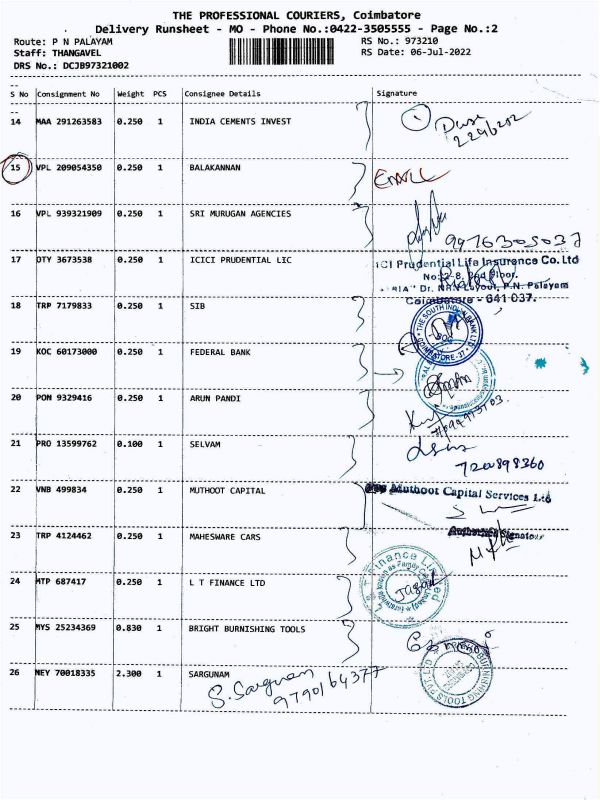 THE PROFESSIONAL COURIERS, Coimbatore
Delivery Runsheet - MO - Phone No.:0422-3505555 - Page No.:2
Route: P N PALAYAM RS No.: 973210
Staff: THANGAVEL RS Date: 06-Jul-2022
DRS No.: DCJB97321002
S No Consignment No Weight PCS Consignee Details Signature
14 MAA 291263583 0.250 1 INDIA CEMENTS INVEST
15 VPL 209054350 0.250 1 BALAKANNAN
16 VPL 939321909 0.250 1 SRI MURUGAN AGENCIES
9976305037
17 OTY 3673538 0.250 1 ICICI PRUDENTIAL LIC
ICI Prudential Life Insurance Co. Ltd
P.N. Palayam
Coimbatore - 641 037.
18 TRP 7179833 0.250 1 SIB
THE SOUTH INDIAN BANK LTD
COIMBATORE-37
19 KOC 60173000 0.250 1 FEDERAL BANK
20 PON 9329416 0.250 1 ARUN PANDI
21 PRO 13599762 0.100 1 SELVAM
7200898360
22 VNB 499834 0.250 1 MUTHOOT CAPITAL
Muthoot Capital Services Ltd
Authorised Signatory
23 TRP 4124462 0.250 1 MAHESWARE CARS
24 MTP 687417 0.250 1 L T FINANCE LTD
Finance Limited
25 MYS 25234369 0.830 1 BRIGHT BURNISHING TOOLS
26 NEY 70018335 2.300 1 SARGUNAM
S. Sargunam
9790164377
BURNISHING TOOLS PVT LTD